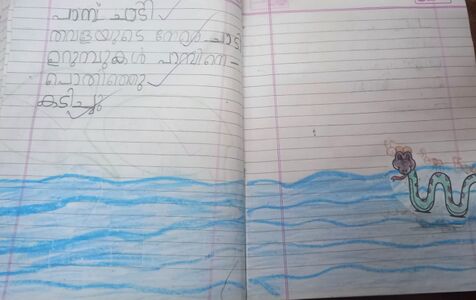 പാമ്പ് ചാടി
തവളയുടെ നേരെ ചാടി
ഉറുമ്പുകൾ പാമ്പിനെ -
പൊതിഞ്ഞു
കടിച്ചു